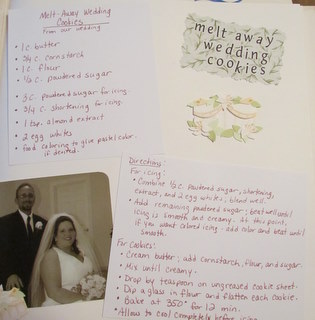 Melt-Away Wedding
Cookies
From our wedding
• 1 c. butter
• 3/4 c. cornstarch
• 1 c. flour
• 1/3 c. powdered sugar
• 3 c. powdered sugar for icing.
• 3/4 c. shortening for icing.
• 1 tsp. almond extract
• 2 egg whites
• food coloring to give pastel color.
if desired.
melt-away
wedding
cookies
Directions:
For icing:
• Combine 1/2 c. powdered sugar, shortening,
extract, and 2 egg whites; blend well.
• Add remaining powdered sugar; beat well until
icing is smooth and creamy. At this point,
if you want colored icing - add color and beat until
smooth.
For Cookies:
• Cream butter; add cornstarch, flour, and sugar.
• Mix until creamy.
• Drop by teaspoon on ungreased cookie sheet.
• Dip a glass in flour and flatten each cookie.
• Bake at 350° for 12 min.
• Allow to cool completely before icing